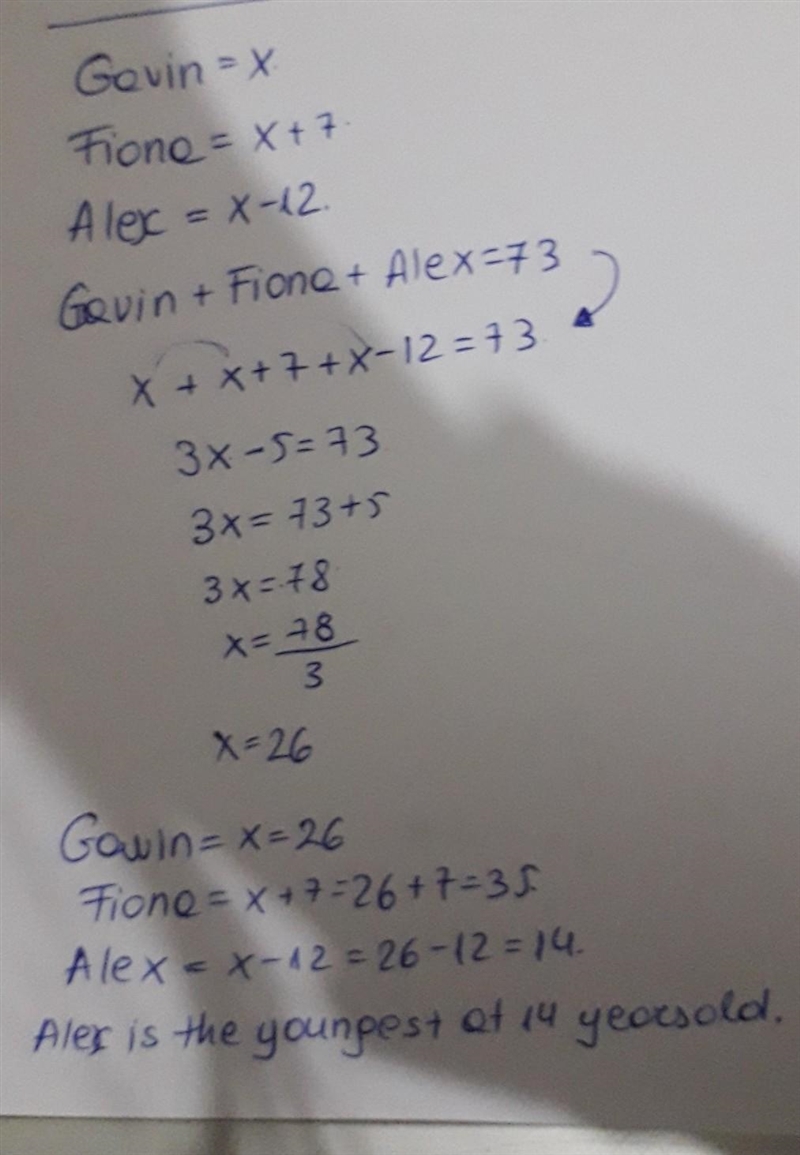 Gavin = x
Fiona = x + 7
Alex = x - 12.
Gavin + Fiona + Alex = 73
x + x + 7 + x - 12 = 73
3x - 5 = 73
3x = 73 + 5
3x = 78
x = 78
3
x = 26
Gawin = x = 26
Fiona = x + 7 = 26 + 7 = 35
Alex = x - 12 = 26 - 12 = 14.
Alex is the youngest at 14 years old.